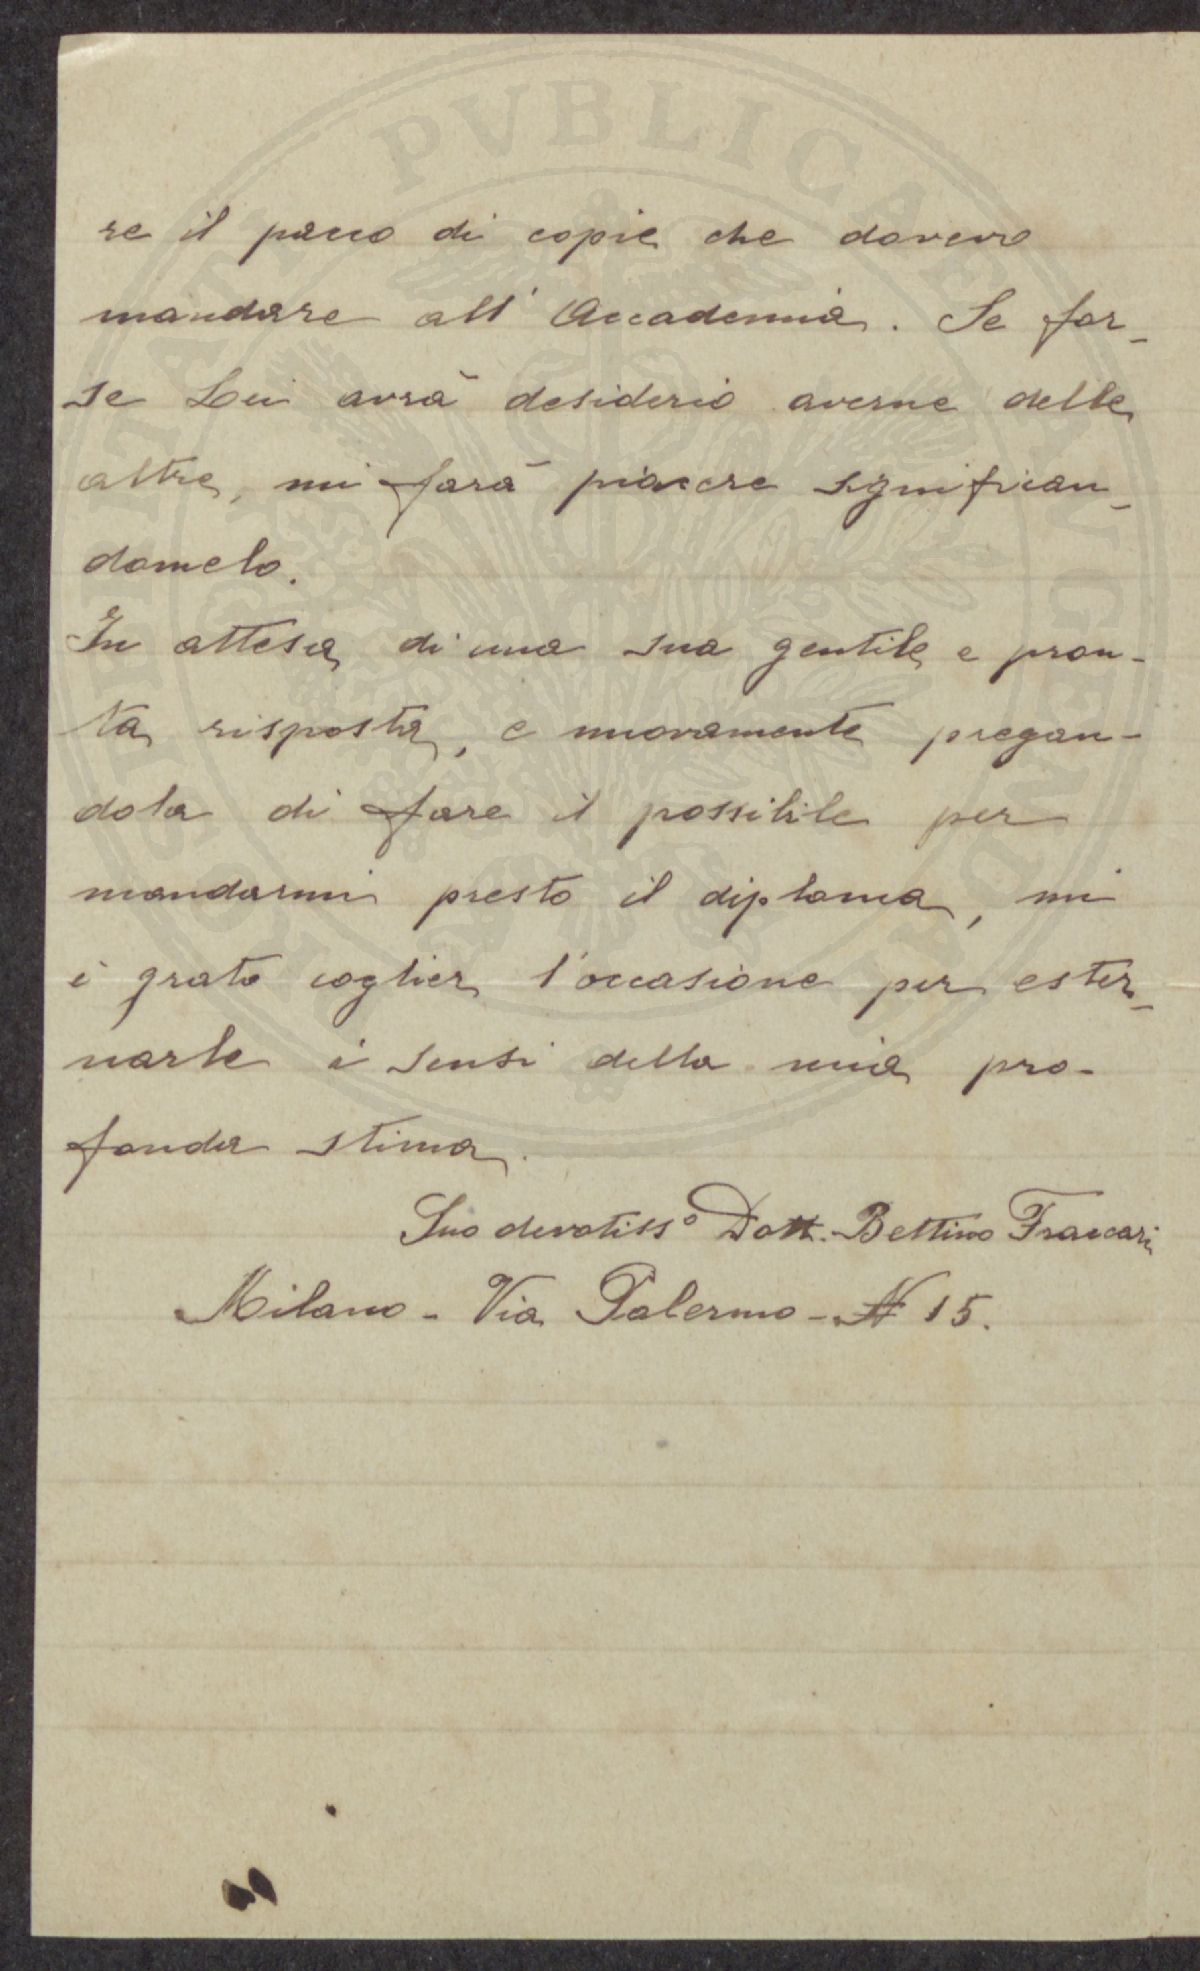 re il pacco di copie che dovevo
mandare all' Accademia. Se for-
se Lei avrà desiderio averne delle
altre, mi farà piacere significan-
domelo.
In attesa di una sua gentile e pron-
ta risposta, e nuovamente pregan-
dola di fare il possibile per
mandarmi presto il diploma, mi
è grato coglier l'occasione per ester-
narle i sensi della mia pro-
fonda stima.
Suo devotiss° Dott. Bettino Fraccari
Milano - Via Palermo - N 15.